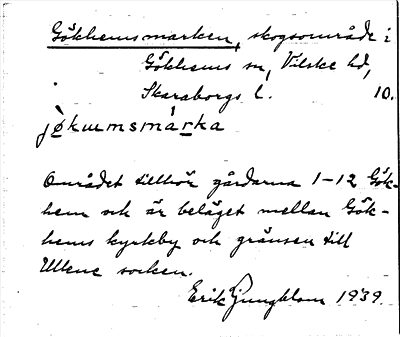 Gökhemsmarken, skogsområde i
Gökhems sn, Vilske hd,
Skaraborgs l. 10.
jø̀kumsmárka
Området tillhör gårdarna 1–12 Gök-
hem och är beläget mellan Gök-
hems kyrkby och gränsen till
Ullene socken.
Erik Ljungblom 1939.